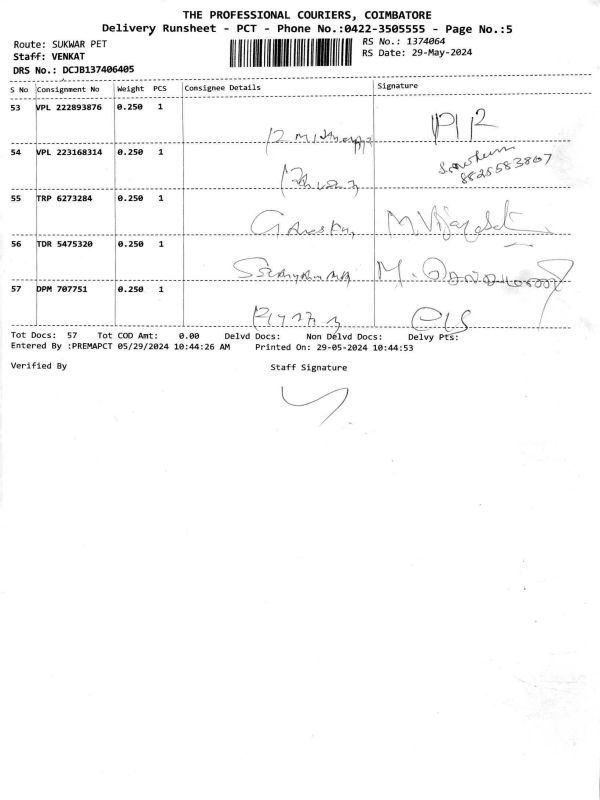 THE PROFESSIONAL COURIERS, COIMBATORE
Delivery Runsheet - PCT - Phone No.:0422-3505555 - Page No.:5
Route: SUKWAR PET
RS No.: 1374064
Staff: VENKAT
RS Date: 29-May-2024
DRS No.: DCJB137406405
S No Consignment No Weight PCS Consignee Details Signature
53 VPL 222893876 0.250 1
54 VPL 223168314 0.250 1
8825583867
55 TRP 6273284 0.250 1
56 TDR 5475320 0.250 1
57 DPM 707751 0.250 1
Tot Docs: 57 Tot COD Amt: 0.00 Delvd Docs: Non Delvd Docs: Delvy Pts:
Entered By :PREMAPCT 05/29/2024 10:44:26 AM Printed On: 29-05-2024 10:44:53
Verified By Staff Signature